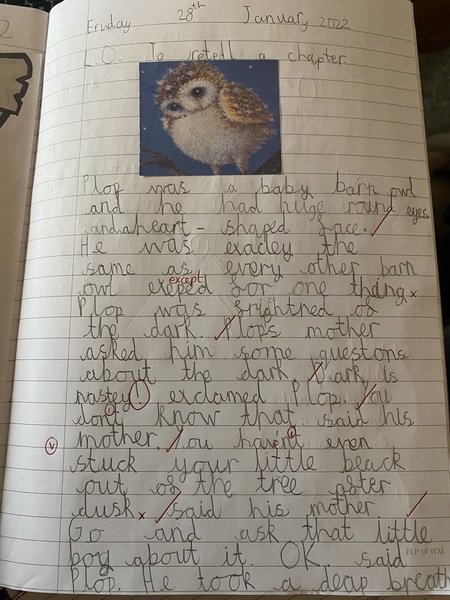 Friday 28th January 2022
L.O. To retell a chapter.
Plop was a baby barn owl
and he had huge round eyes
and a heart-shaped face.
He was exacley the
same as every other barn
except
owl exeped for one thang x
Plop was frightned of
the dark. Plops mother
asked him some questons
about the dark. Dark is
nastey! exclamed Plop. You
don't know that. said his
v mother. You haven't even
stuck your little beack
out of the tree after
dusk x said his mother.
Go and ask that little
boy about it. OK. said
FLP 10 WM
Plop. He took a deap breath